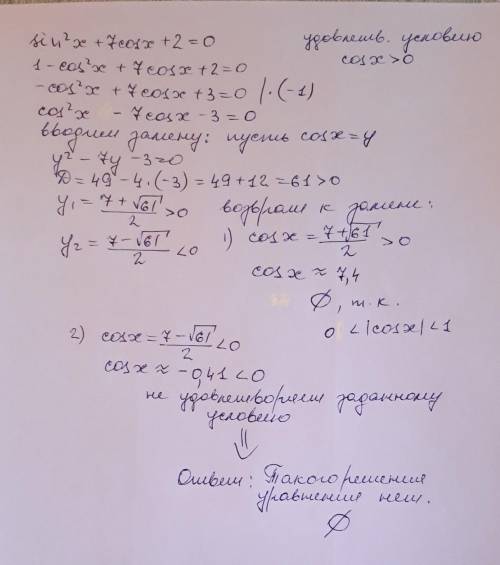 sin²x + 7cosx + 2 = 0
удовлетв. условию
cosx > 0
1 - cos²x + 7cosx + 2 = 0
-cos²x + 7cosx + 3 = 0 /·(-1)
cos²x - 7cosx - 3 = 0
вводим замену: пусть cosx = y
y² - 7y - 3 = 0
D = 49 - 4·(-3) = 49 + 12 = 61 > 0
y₁ = (7 + √61)/2 > 0
y₂ = (7 - √61)/2 < 0
возврат к замене:
1) cosx = (7 + √61)/2 > 0
cosx ≈ 7,4
∅, т.к.
0 < |cosx| < 1
2) cosx = (7 - √61)/2 < 0
cosx ≈ -0,41 < 0
не удовлетворяет заданному
условию
⇓
Ответ: Такого решения
уравнения нет.
∅